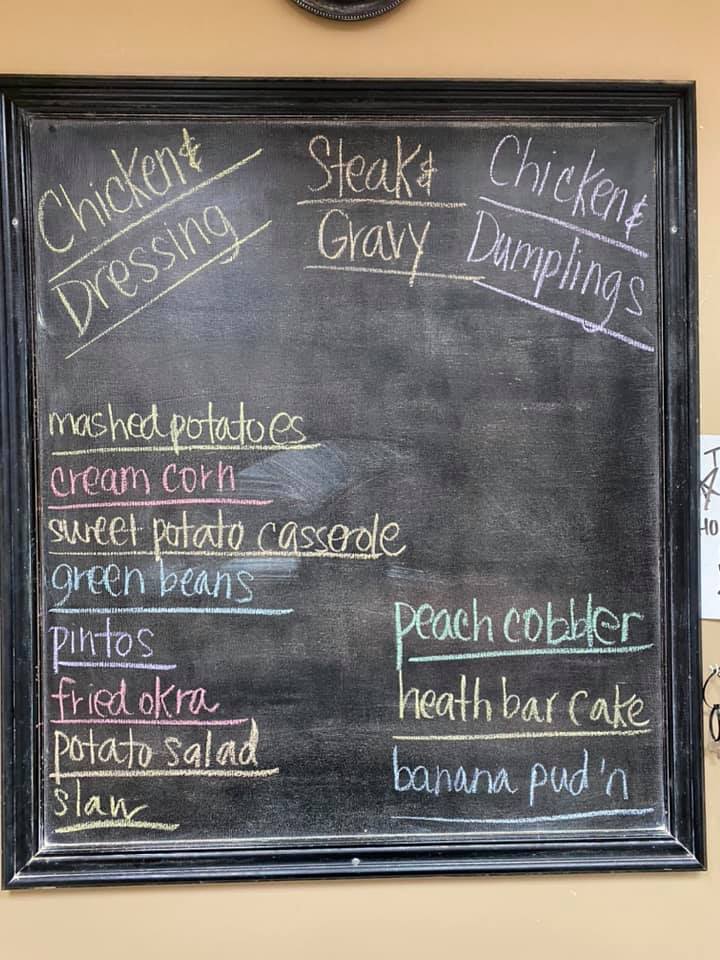 Chicken &
Dressing
Steak &
Gravy
Chicken &
Dumplings
mashed potatoes
cream corn
sweet potato casserole
green beans
pintos
fried okra
potato salad
slaw
peach cobbler
heath bar cake
banana pud'n